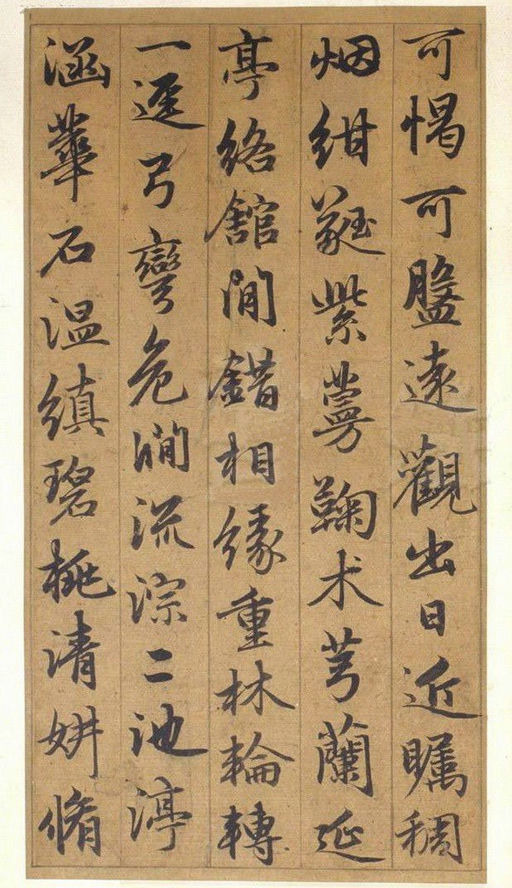 可愒可盤遠觀出日近矚稠
烟紺蕤紫蔓鞠术芎蘭延
亭絡館間錯相緣重林輪轉
一逕弓彎危澗流淙二池渟
涵華石温縝碧桃清妍脩